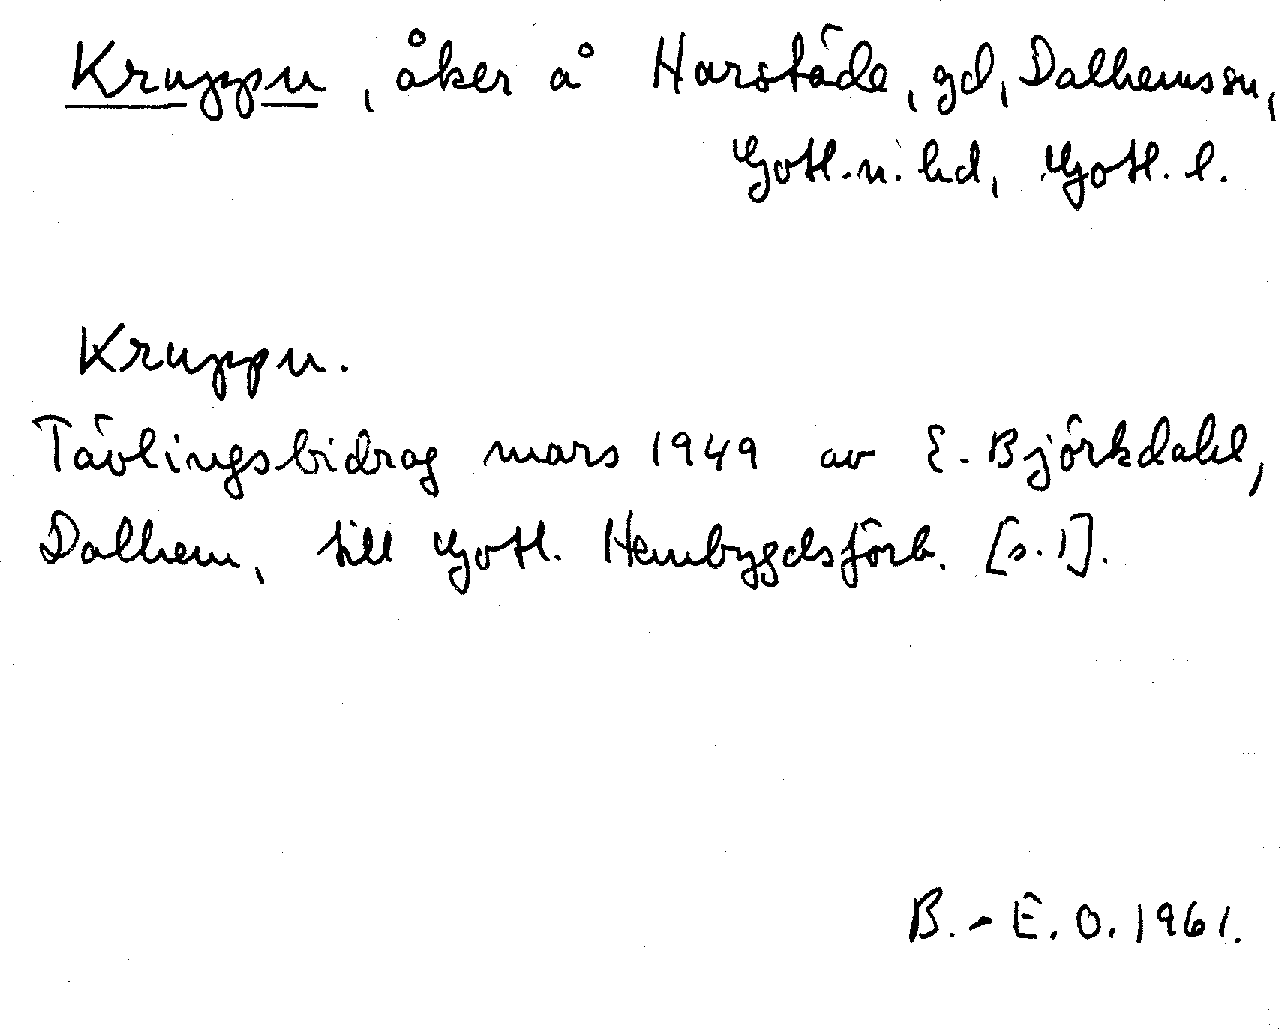 Kruppu, åker å Harstäde, gd, Dalhems sn,
Gotl. n. hd, Gotl. l.
Kruppu.
Tävlingsbidrag mars 1949 av E. Björkdahl,
Dalhem, till Gotl. Hembygdsförb. [s. 1].
B.-E. O. 1961.